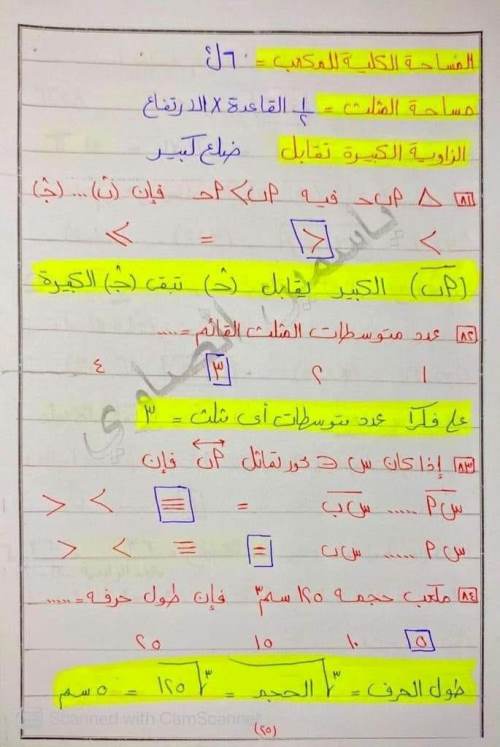 المساحة الكلية للمكعب = ٦ل٢
مساحة المثلث = ١/٢ القاعدة × الارتفاع
الزاوية الكبيرة تقابل ضلع كبير
٨١ △ ٢ب حـ فيه ٢ب > ٢حـ فإن (بُ) ... (جُ)
< > = ≥
(٢ب) الكبير يقابل (حـ) تبقى (جُ) الكبيرة
٨٢ عدد متوسطات المثلث القائم = .....
١ ٢ ٣ ٤
على فكرا عدد متوسطات أى مثلث = ٣
٨٣ إذا كان س ∈ محور تماثل ٢ب فإن
س٢ ..... س ب = ≡ < >
س٢ ..... س ب = ≡ < >
٨٤ مكعب حجمه ١٢٥ سم٣ فإن طول حرفه = .....
٥ ١٠ ١٥ ٢٥
طول الحرف = ٣√الحجم = ٣√١٢٥ = ٥ سم
ياسمين الصاوي
Scanned with CamScanner
(٢٥)